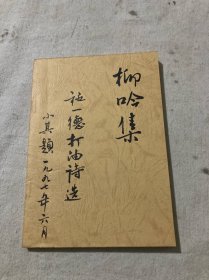 柳吟集
祉一德打油诗选
小其题 一九九七年六月